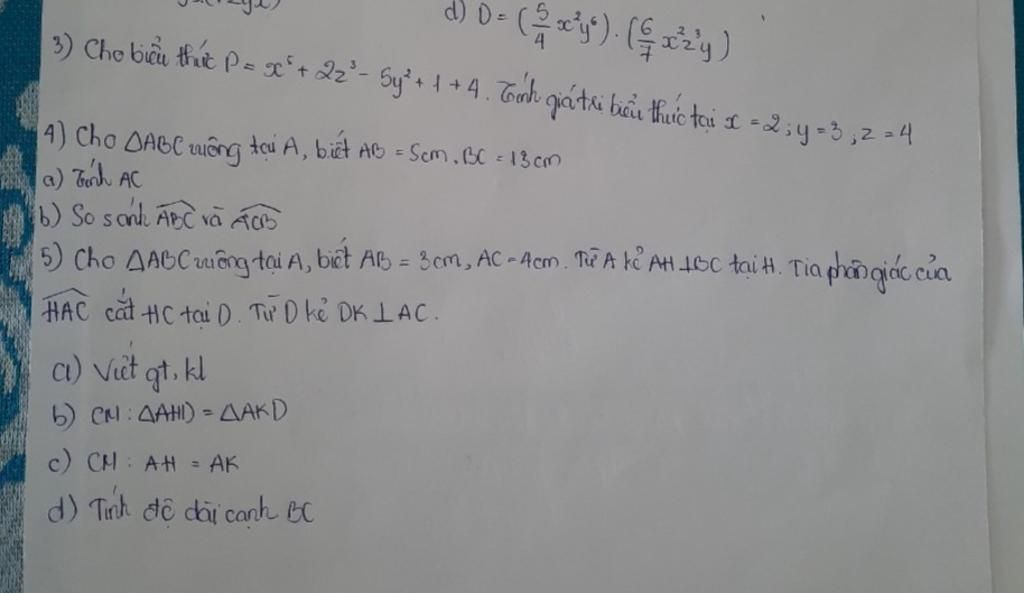 d) D = (5/4 x²y⁶) . (6/7 x²z³y)
3) Cho biểu thức P = x⁵ + 2z³ - 5y² + 1 + 4 . Tính giá trị biểu thức tại x = 2 ; y = 3 ; z = 4
4) Cho ΔABC vuông tại A, biết AB = 5cm. BC = 13cm
a) Tính AC
b) So sánh ABC và ACB
5) Cho ΔABC vuông tại A, biết AB = 3cm, AC = 4cm. Từ A kẻ AH ⊥ BC tại H. Tia phân giác của
HAC cắt HC tại D. Từ D kẻ DK ⊥ AC.
a) Viết gt, kl
b) CM : ΔAHD = ΔAKD
c) CM : AH = AK
d) Tính độ dài cạnh BC